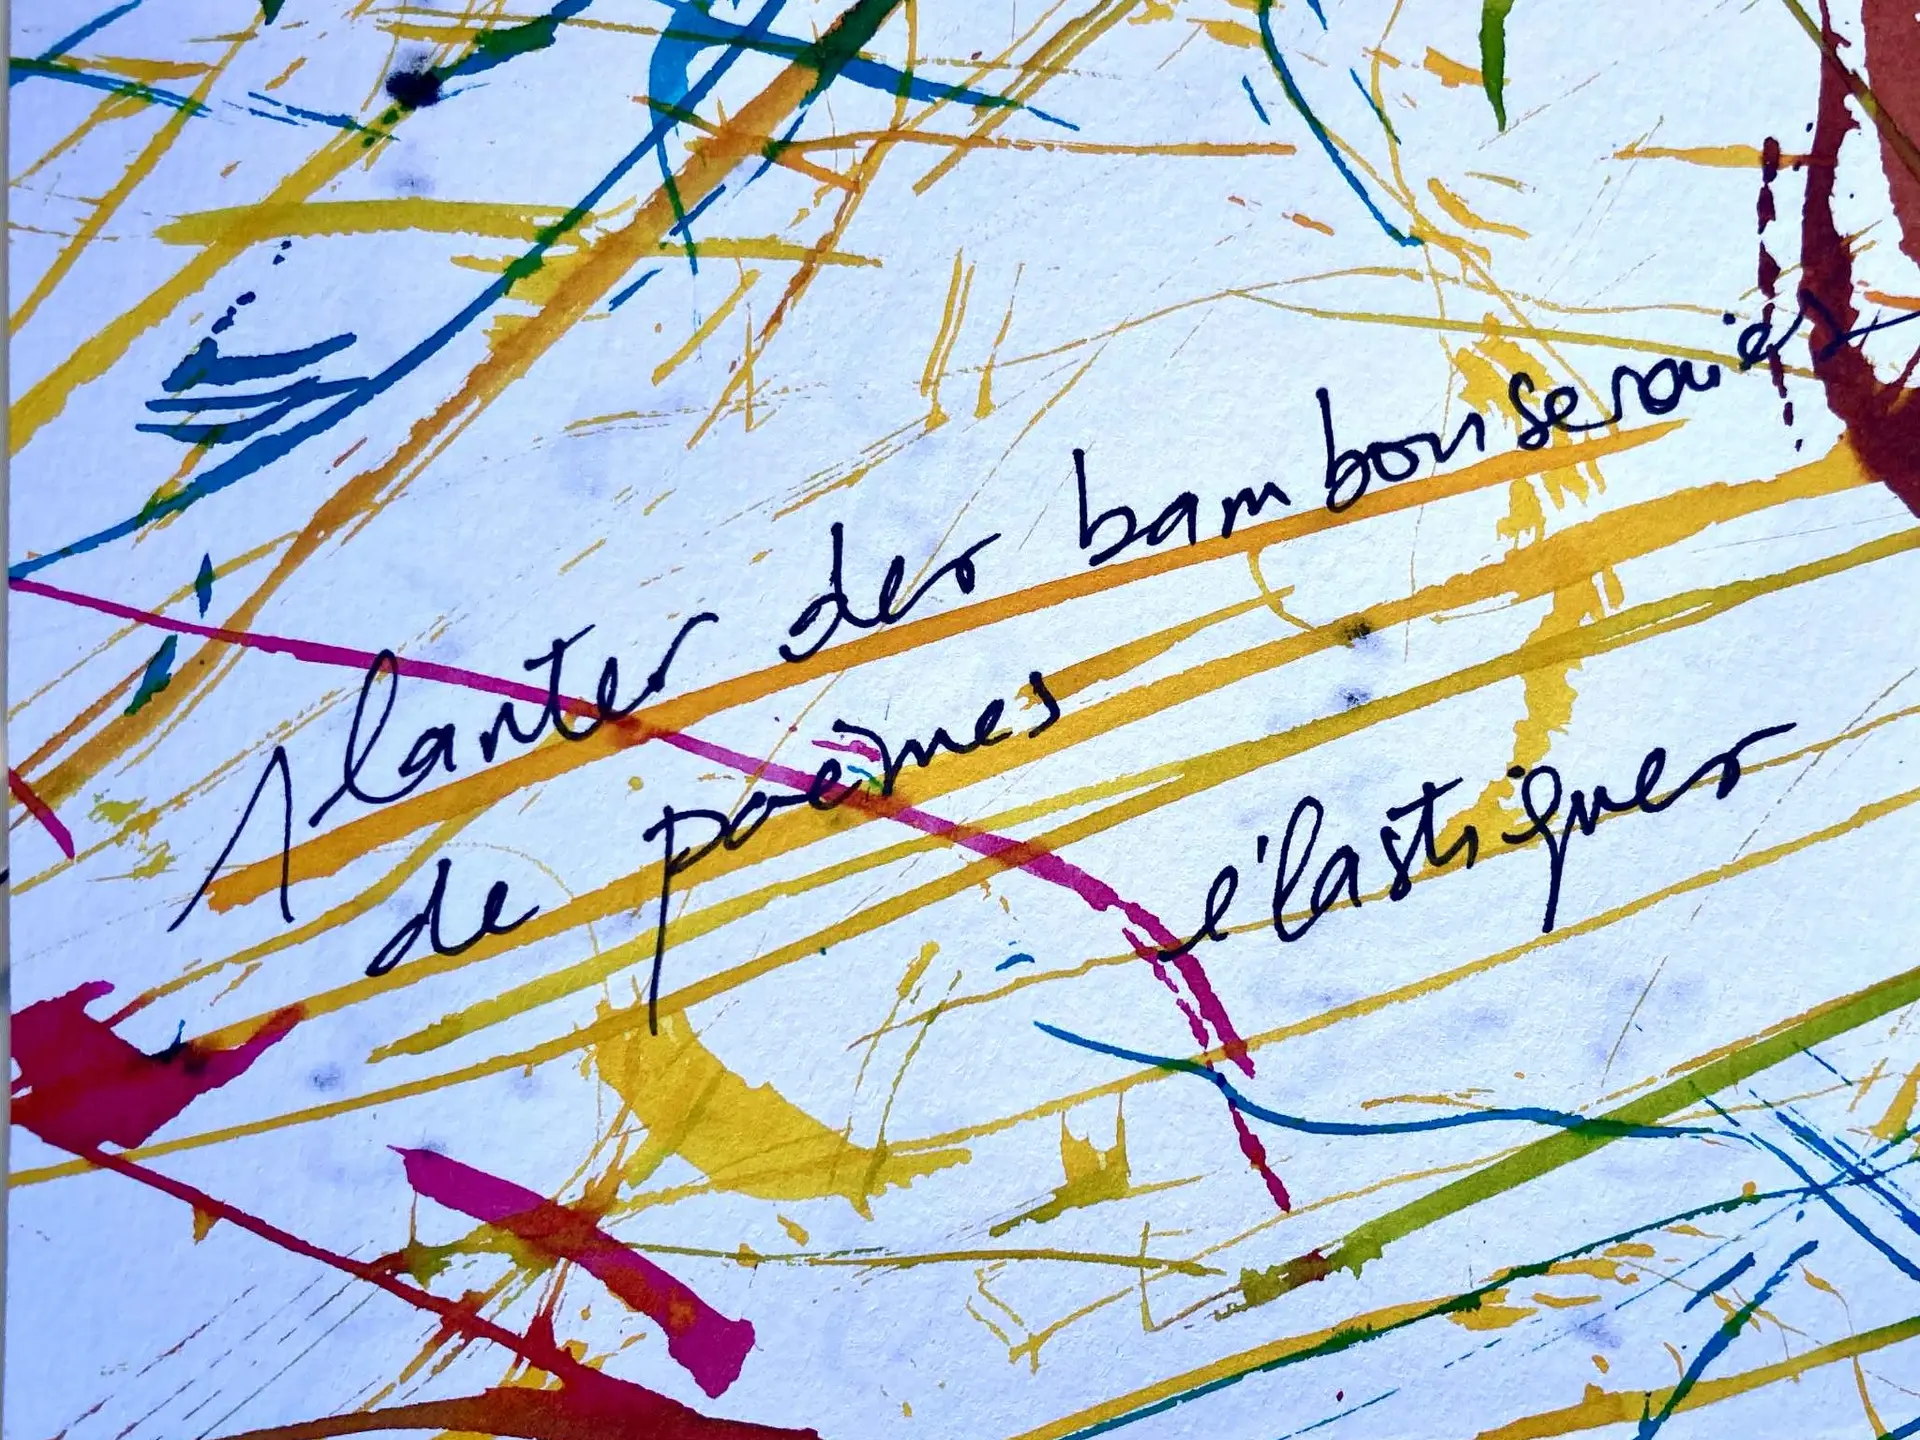 Planter des bambouseraies
de poèmes
élastiques